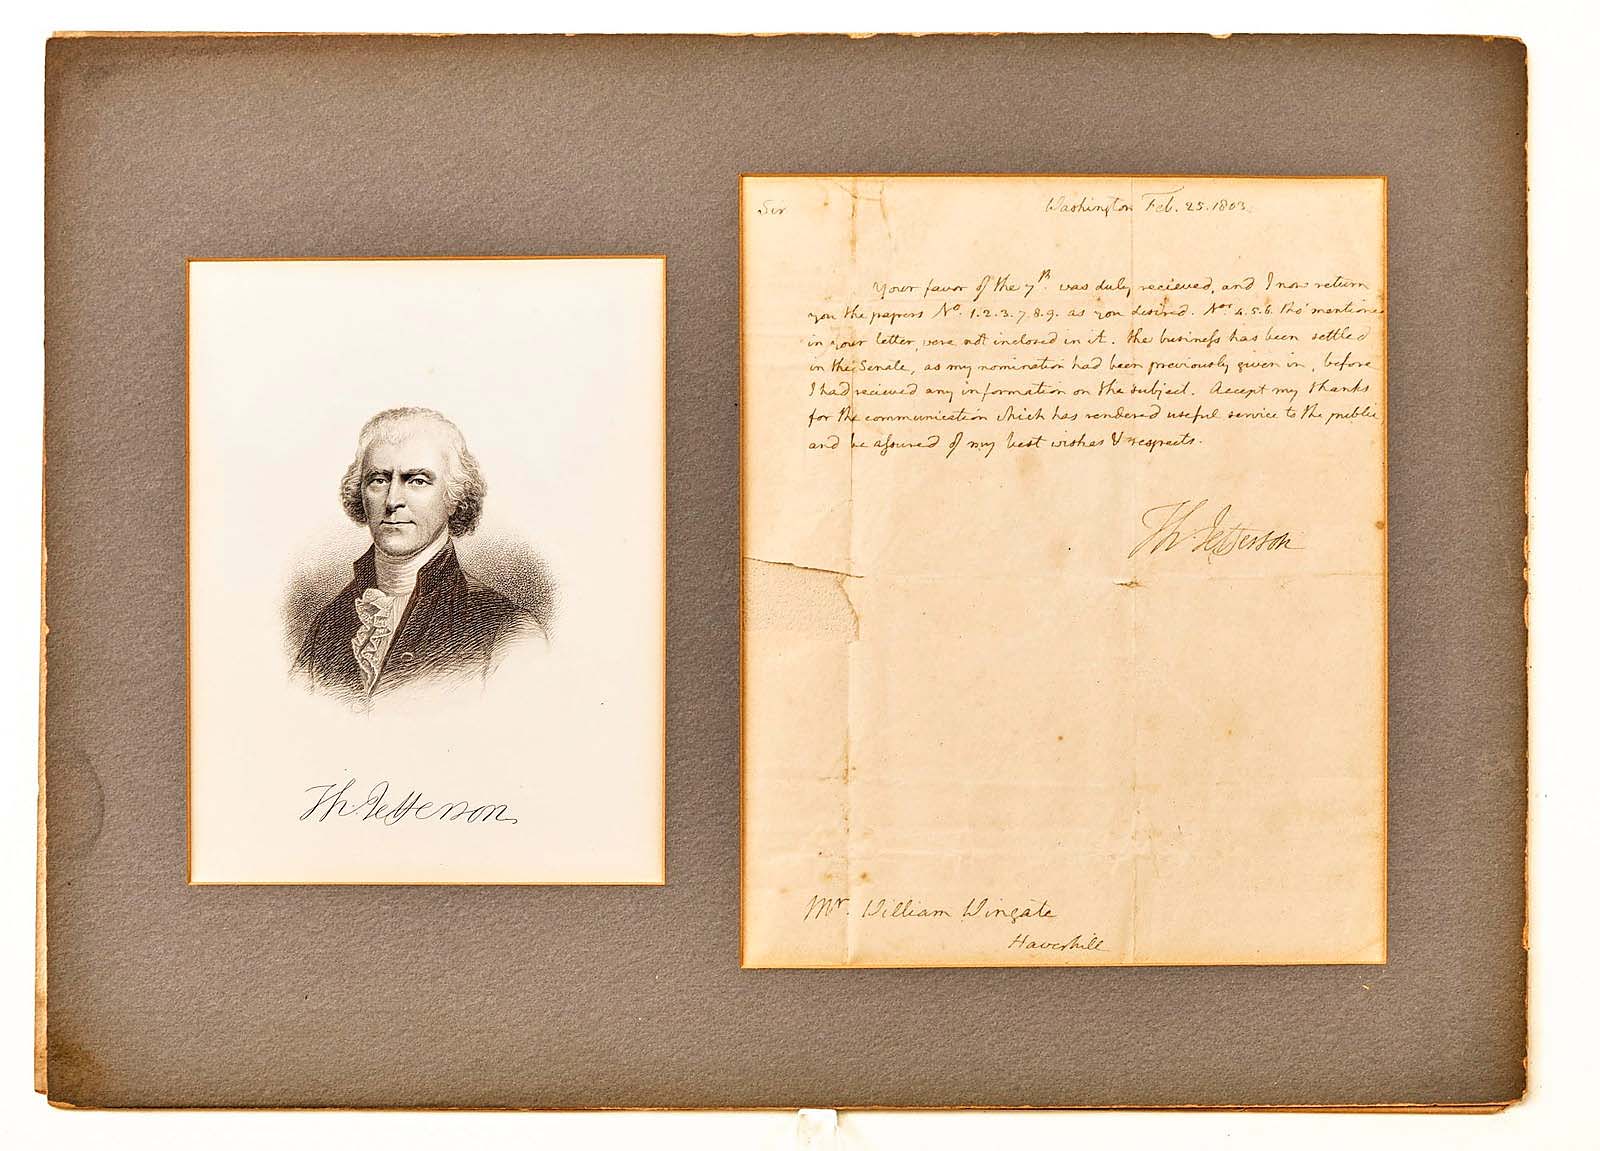 Th. Jefferson
Sir
Washington Feb. 25. 1803.
Your favor of the 7th. was duly recieved, and I now return
you the papers No. 1. 2. 3. 7. 8. 9. as you desired. Nos. 4. 5. 6. tho' mentioned
in your letter, were not inclosed in it. the business has been settled
in the Senate, as my nomination had been previously given in, before
I had recieved any information on the subject. Accept my thanks
for the communication which has rendered useful service to the public
and be assured of my best wishes & respects.
Th: Jefferson
Mr. William Wingate
Haverhill